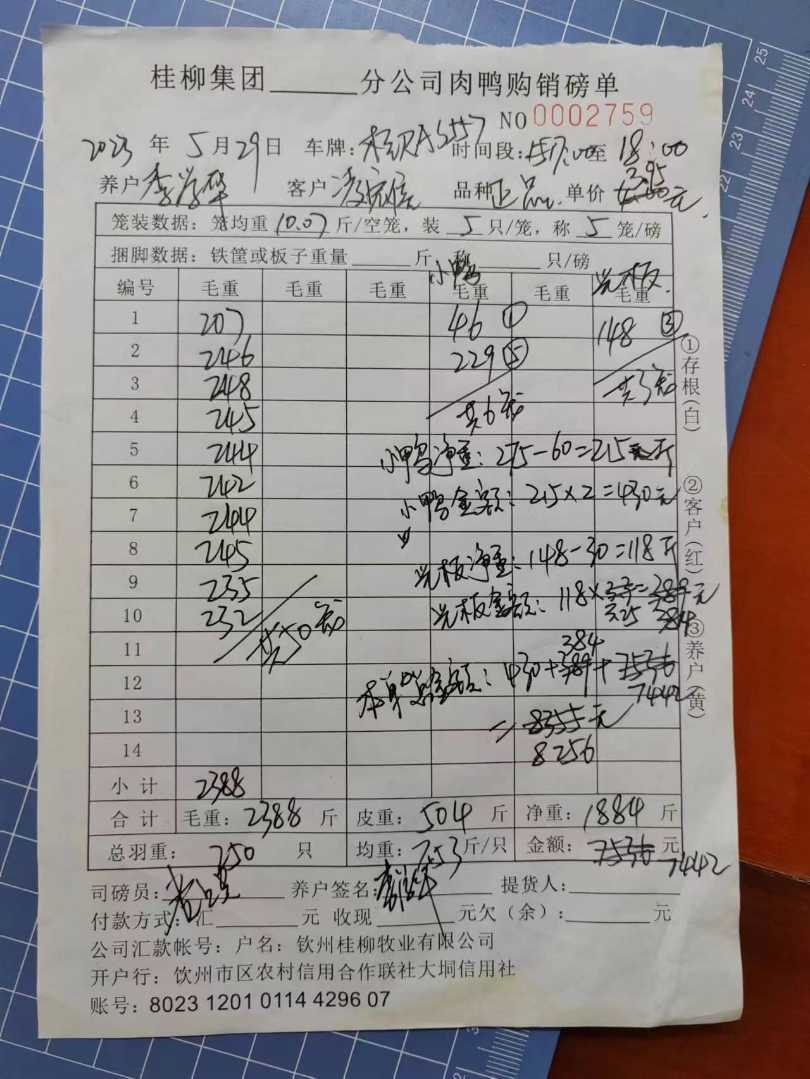 桂柳集团______分公司肉鸭购销磅单
NO 0002759
2023 年 5 月 29 日 车牌: 时间段: 17:00 至 18:00
养户 客户 品种 正品 单价 3.95 元
笼装数据: 笼均重 10.07 斤/空笼, 装 5 只/笼, 称 5 笼/磅
捆脚数据: 铁筐或板子重量______斤, 称______只/磅
小鸭
编号 毛重 毛重 毛重 毛重 毛重 毛重
1 207 46 ① 148 ③
2 246 229 ⑤
3 248 共3笼
4 245 共6笼
5 244 小鸭净重: 275-60=215斤
6 242 小鸭金额: 215×2=430元
7 244
8 245 净重: 148-30=118斤
9 235 金额: 118×3.3=389元
10 232 共50笼 3.25 384
11 384
12 本单总金额: 430+389+7536
7442
13 =8355元
14 8256
小计 2388
合计 毛重: 2388 斤 皮重: 504 斤 净重: 1884 斤
总羽重: 250 只 均重: 7.53 斤/只 金额: 7536 元
7442
司磅员: 养户签名: 提货人:
付款方式: 汇______元 收现______元欠(余):______元
公司汇款帐号: 户名: 钦州桂柳牧业有限公司
开户行: 钦州市区农村信用合作联社大垌信用社
账号: 8023 1201 0114 4296 07
①存根(白)
②客户(红)
③养户(黄)